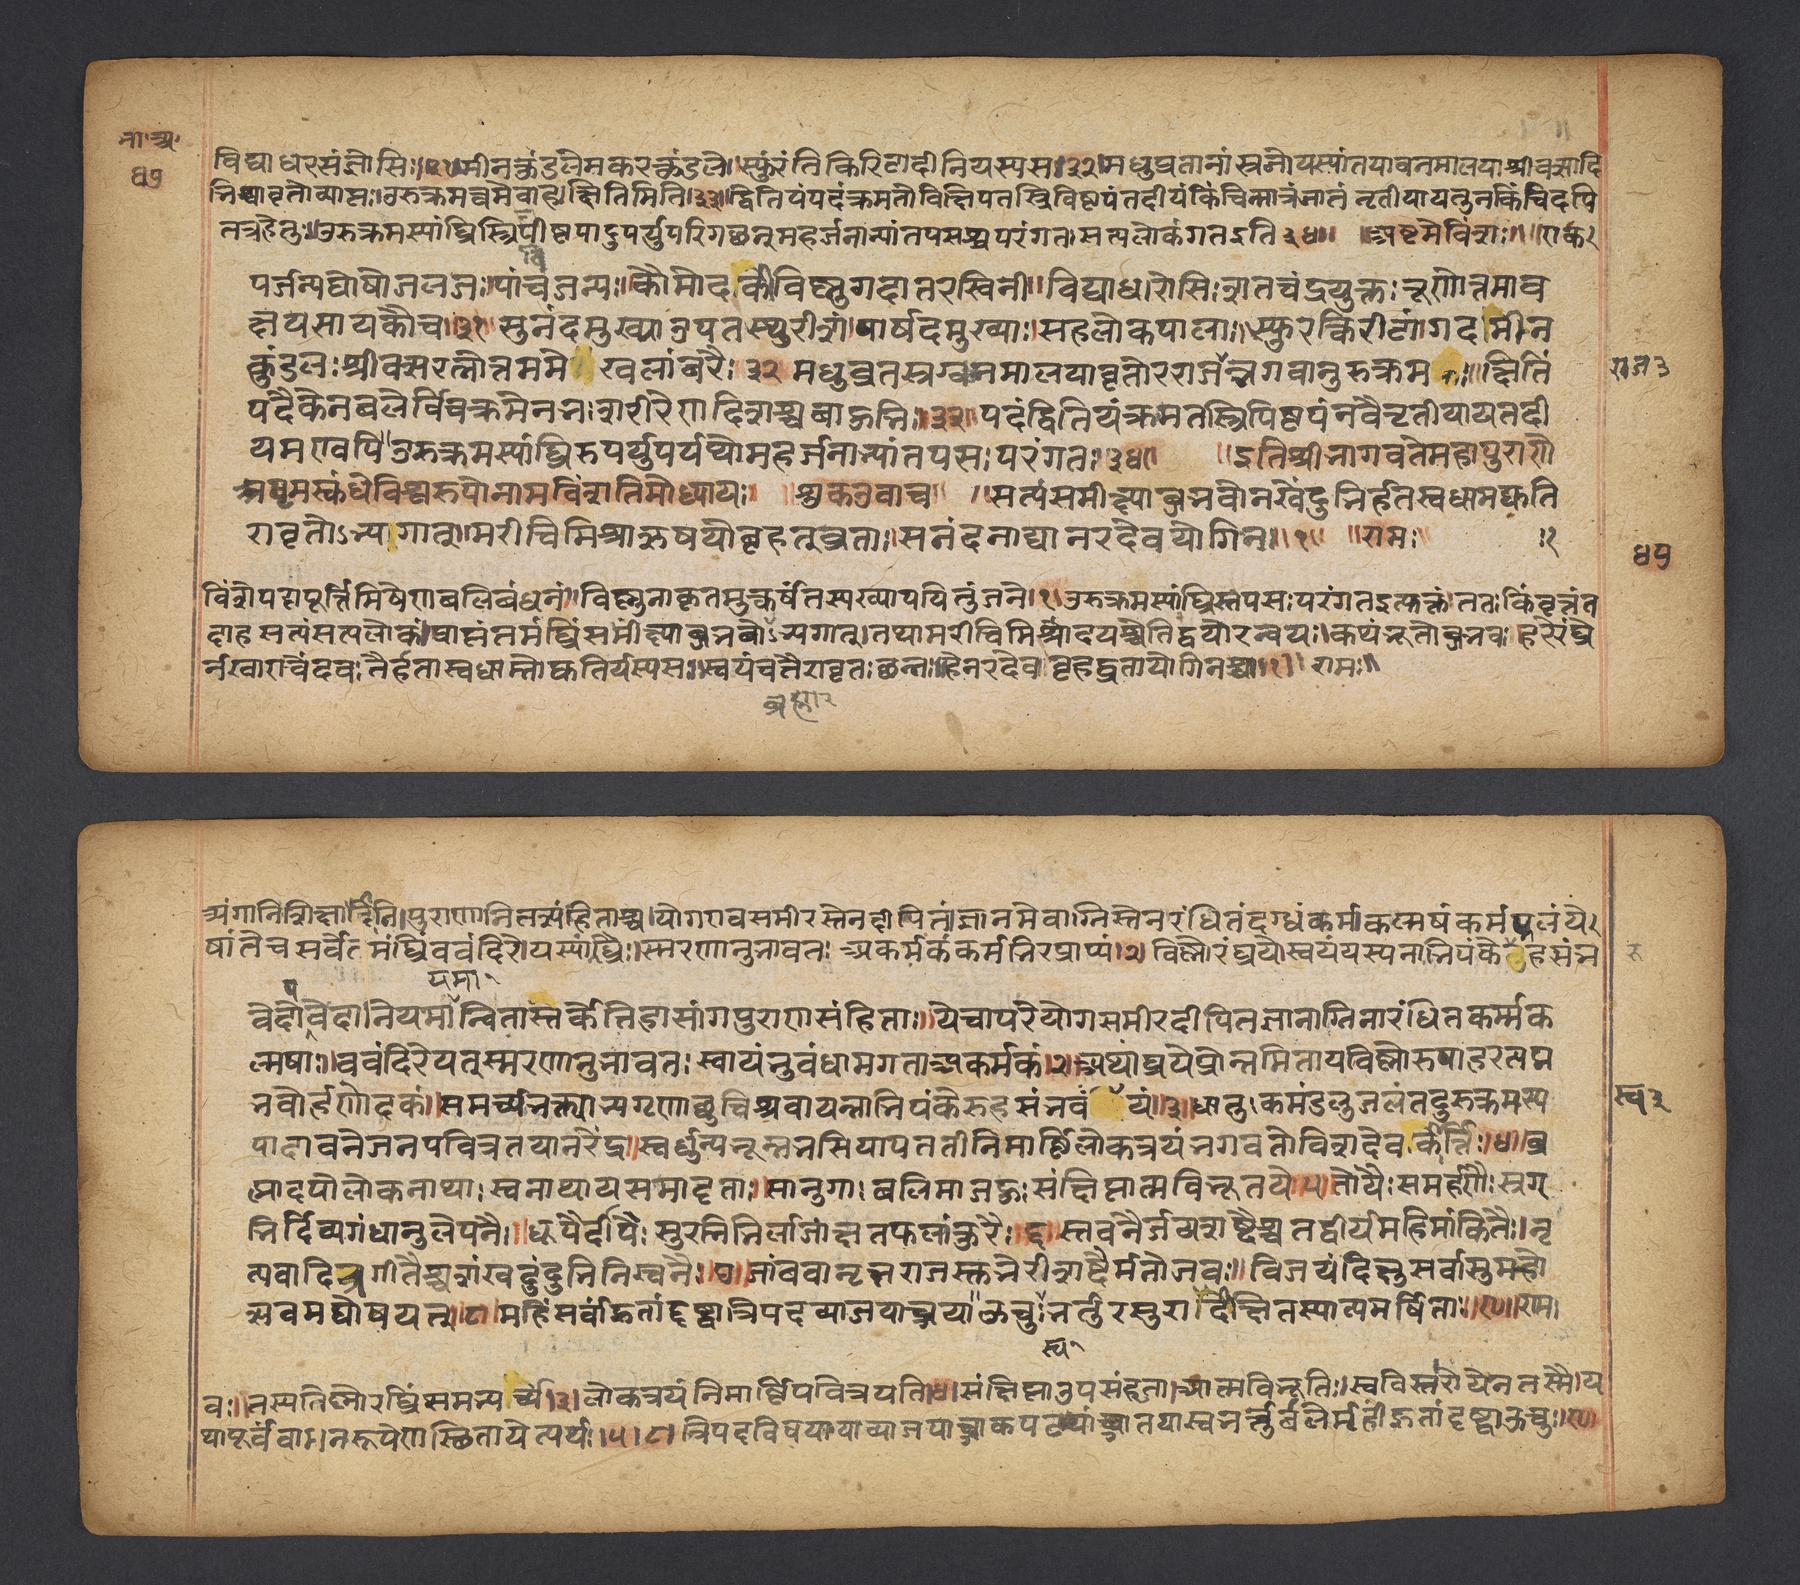 भा॰अ॰
४७
विद्याधरसंज्ञोसिः।३१।मीनकुंडलेमकरकुंडले।स्फुरंतिकिरिटादीनियस्यस।३२।मधुव्रतानांस्रजोयस्यांतयावनमालयाश्रीवत्सादि
भिश्चावृतोव्याप्तः।उरुक्रमत्वमेवाह।क्षितिमिति।३३।द्वितियंपदंक्रमतोविक्षिपतस्त्रिविष्टपंतदीयंकिंचिन्मात्रंजातं तृतीयायतुनकिंचिदपि
तत्रहेतुः।उरुक्रमस्यांघ्रिस्त्रिपीष्टपादुपर्युपरिगछन्महर्जनाभ्यांतपसश्चपरंगतःसत्यलोकंगतइति३४॥ अष्टमेविंशः॥
पर्जन्यघोषोजलजःपांचजन्यः॥कौमोदकीविष्णुगदातरस्विनी॥विद्याधरोसिःशतचंद्रयुक्तःतूणोत्तमाव
क्षयसायकौच।३१।सुनंदमुख्याउपतस्थुरीशंपार्षदमुख्याःसहलोकपालाः॥स्फुरत्किरीटांगदमीन
कुंडलःश्रीवत्सरत्नोत्तममेखलांबरैः३२मधुव्रतस्रग्वनमालयावृतोरराजराजन्भगवानुरुक्रमः॥क्षितिं
पदैकेनबलेर्विचक्रमेनभःशरीरेणदिशश्चबाहुभिः।३३।पदंद्वितियंक्रमतस्त्रिपिष्टपंनवैतृतीयायतदी
यमण्वपि॥उरुक्रमस्यांघ्रिरुपर्युपर्यथोमहर्जनाभ्यांतपसःपरंगतः।३४॥ ॥इतिश्रीभागवतेमहापुराणे
अष्टमस्कंधेविश्वरुपोनामविंशतिमोध्यायः। ॥शुकउवाच॥ ॥सत्यंसमीक्ष्याब्जभवोनखेंदुभिर्हतस्वधामद्युति
रावृतोऽभ्यागात्॥मरीचिमिश्राऋषयोबृहत्व्रताःसनंदनाद्यानरदेवयोगिनः॥१॥ ॥रामः
राज३
४७
विंशेपदापूर्त्तिमिषेणबलिबंधनं।विष्णुनाकृतमुत्कर्षंतस्यख्यापयितुंजने।१।उरुक्रमस्यांघ्रिस्तपसःपरंगतइत्युक्तं ततःकिंवृत्तंत
दाह सत्यंसत्यलोकंप्राप्तंतमंघ्रिंसमीक्ष्याब्जभवोऽभ्यगात्।तथामरीचिमिश्रादयश्चेतिद्वयोरन्वयः।कथंभूतोब्जभवः
र्नखाएवेंदवःतैर्हतास्वधाम्नोद्युतिर्यस्यसः॥स्वयंचतैरावृतःछन्नः।हेनरदेव बृहद्व्रतायोगिनश्च।१। रामः॥
ब्रह्मा२
अंगानिशिक्षादिनि।पुराणानितत्संहिताश्च।योगएवसमीरस्तेनदीपितंज्ञानमेवाग्निस्तेनरंधितंदग्धंकर्मकल्मषंकर्ममलंयै
षांतेचसर्वेतमंघ्रिंववंदिरे।यस्यांघ्रेःस्मरणानुभावतः अकर्मकंकर्मभिरप्राप्यं।२।विष्णोरंघ्रये।स्वयंयस्यनाभिपंकेरुहसंभ
यमा
वेदोपवेदानियमान्वितास्तर्केतिहासांगपुराणसंहिताः॥येचापरेयोगसमीरदीपितज्ञानाग्निनारंधितकर्म्मक
ल्मषाः॥ववंदिरेयत्स्मरणानुभावतःस्वायंभुवंधामगताअकर्मकं।२।अथांघ्रयेप्रोन्नमितायविष्णोरुपाहरत्पद्म
भवोर्हणोदकं॥समर्च्यभक्त्याभ्यगृणाछुचिश्रवायन्नाभिपंकेरुहसंभवःस्वयं।३।धातुःकमंडलुजलंतदुरुक्रमस्य
पादावनेजनपवित्रतयानरेंद्र॥स्वर्धुन्यभून्नभसियापततीनिमार्ष्टिलोकत्रयंभगवतोविशदेवकीर्त्तिः।४।ब्र
ह्मादयोलोकनाथाःस्वनाथायसमादृताः॥सानुगाःबलिमाजह्रुःसंक्षिप्तात्मविभूतये।५।तोयैःसमर्हणैःस्रग्
भिर्दिव्यगंधानुलेपनैः।धूपैर्दीपैःसुरभिभिर्लाजांक्षतफलांकुरैः।६।स्तवनैर्जयशब्दैश्चतद्वीर्यमहिमांकितैः।नृ
त्यवादित्रगीतैश्चशंखदुंदुभिनिस्वनैः।७।जांबवानृक्षराजस्तुभेरीशब्दैर्मनोजवः॥विजयंदिक्षुसर्वासुमहो
त्सवमघोषयत्।८।महींसर्वांहृतांदृष्ट्वात्रिपदव्याजयाच्ञया॥ऊचुःस्वभर्त्तुरसुरादीक्षितस्यात्यमर्षिताः॥९॥राम।
स्व३
स्व॰
वः।तस्यविष्णोरंघ्रिंसमभ्यर्च्य।३।लोकत्रयंनिमार्ष्टिपवित्रयति।४।संक्षिप्ताउपसंहृता।आत्मविभूतिःस्वविस्तारोयेनतस्मै।य
यापूर्वंवामनरूपेणस्थितायेत्यर्थः।५।८।त्रिपदविषयायाव्याजयाच्ञाकपटयाच्ञातयास्वभर्त्तुर्बलेर्महींहृतांदृष्ट्वाऊचुः।९।